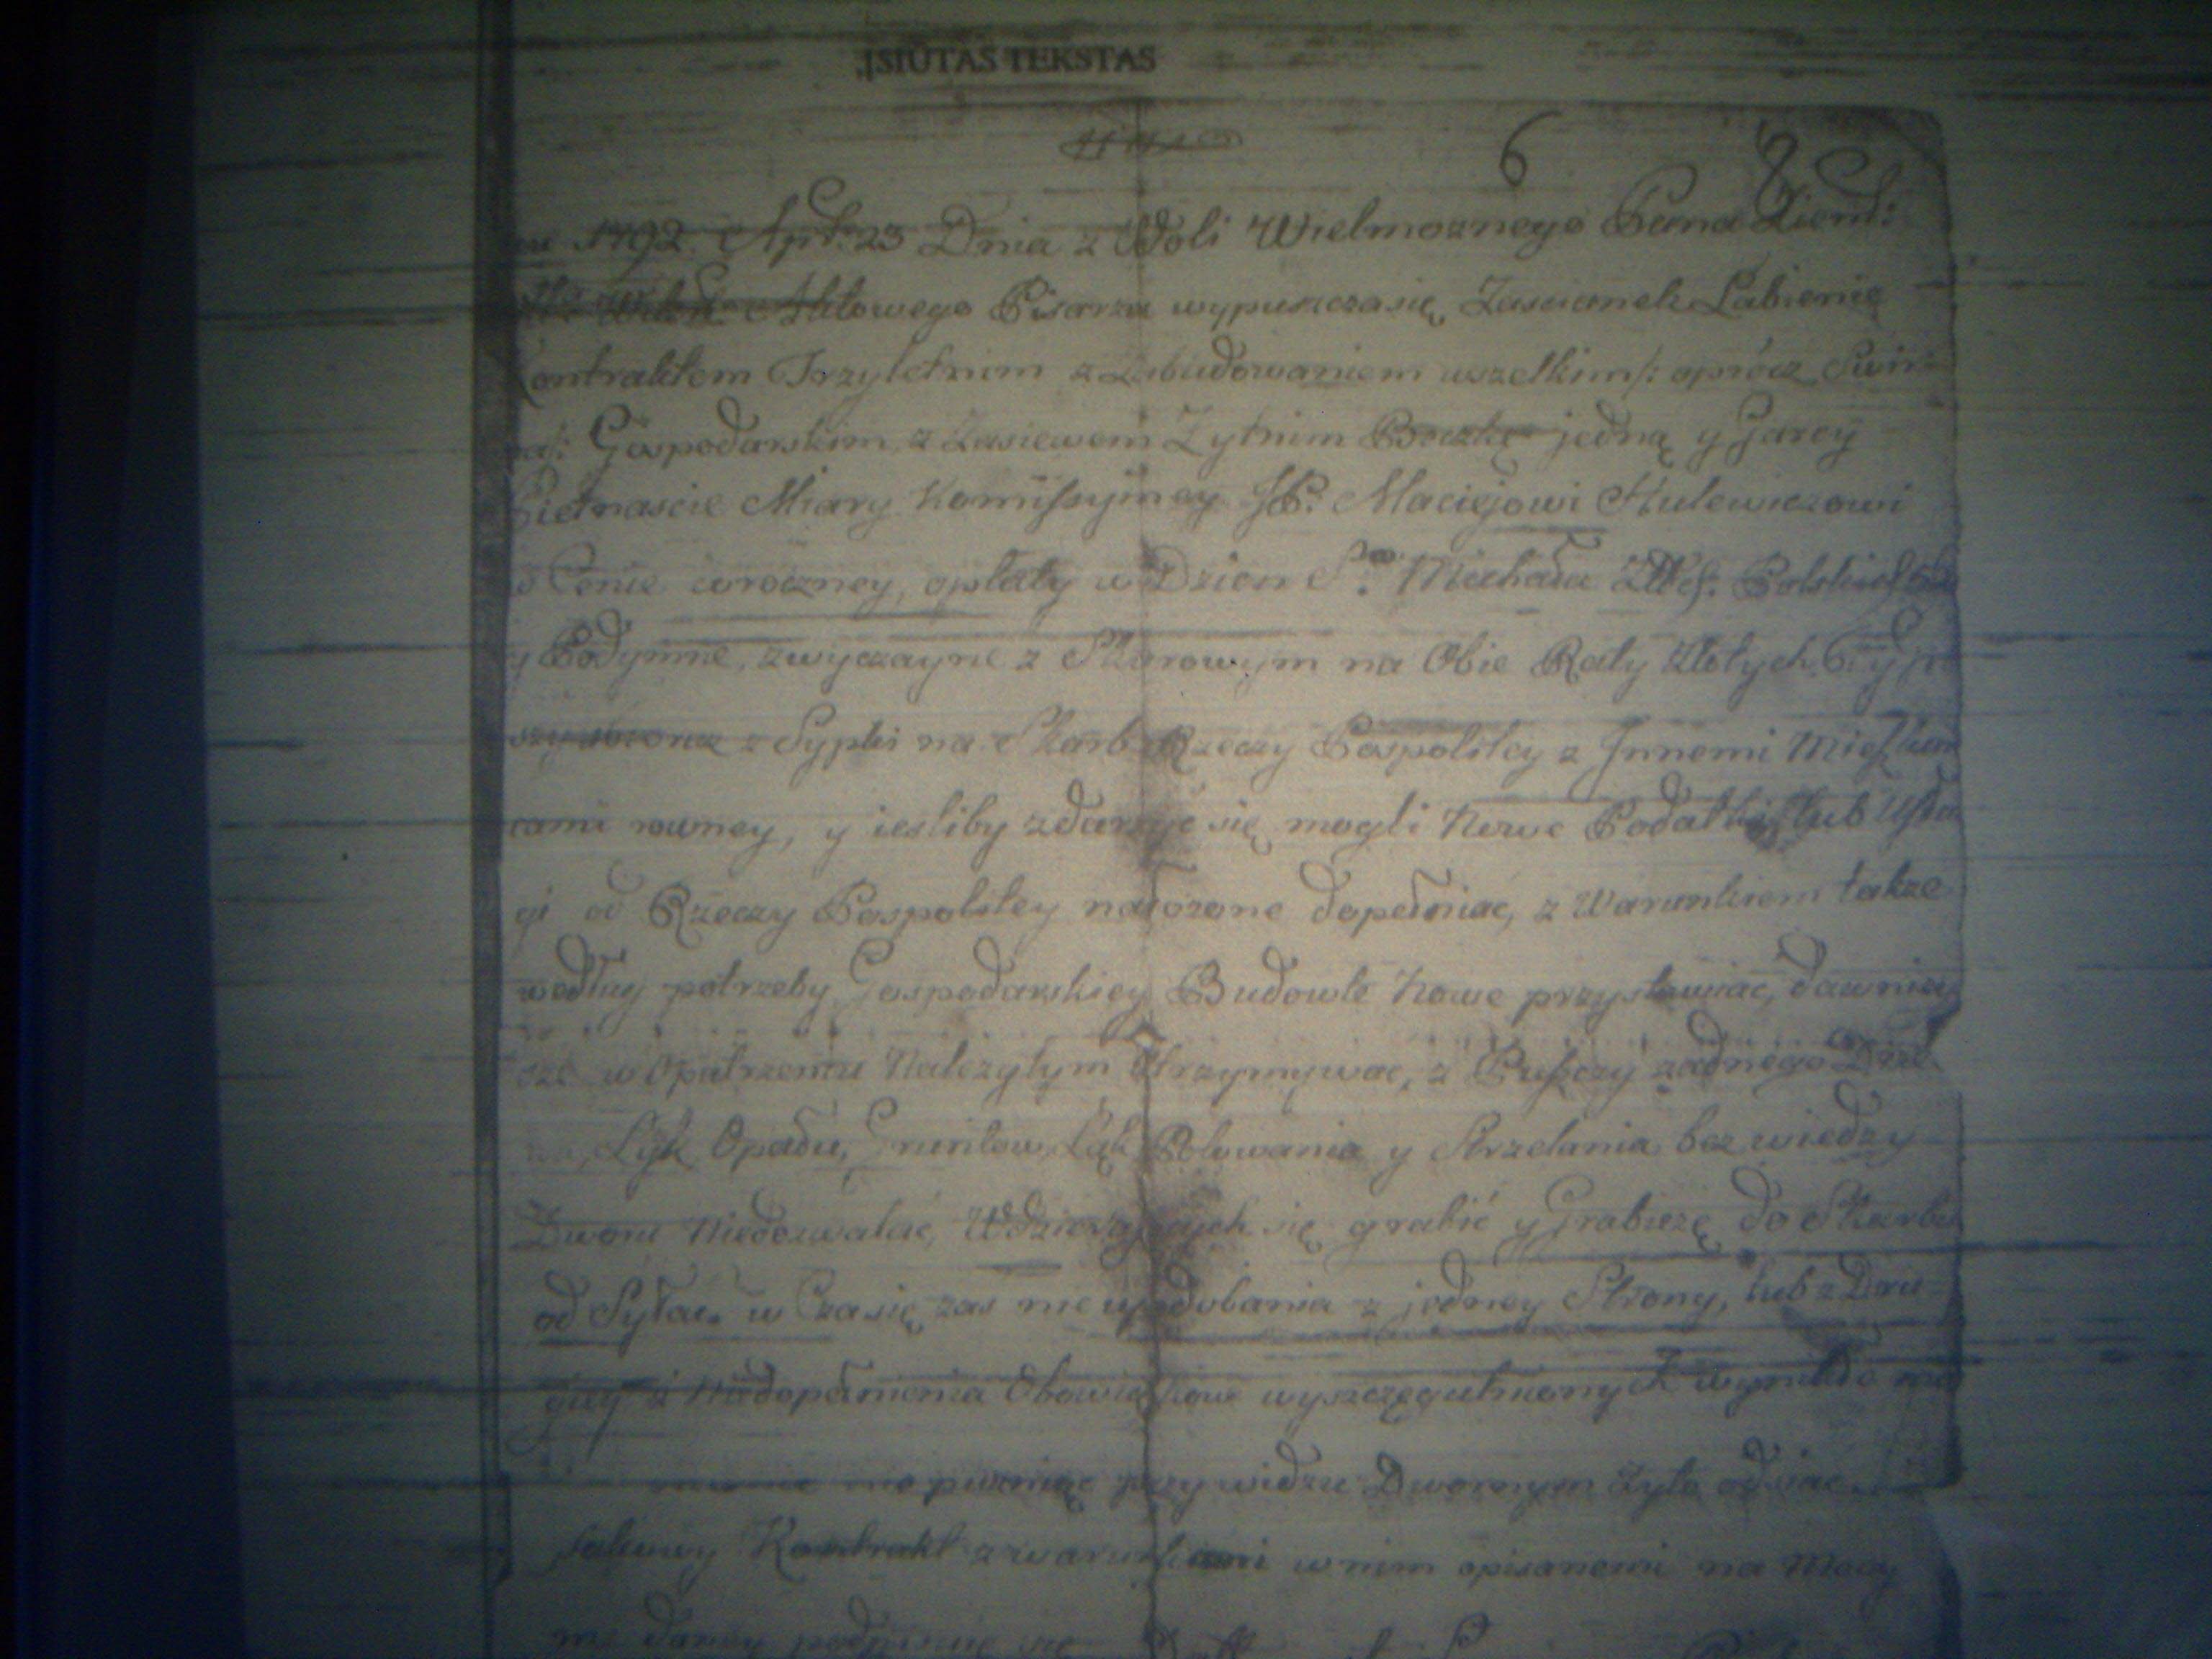 ĮSIŪTAS TEKSTAS
6 8
1792 Apr: 23 Dnia z Woli Wielmoznego Pana Ziem:
Aktowego Pisarza wypuszcza się Zascianek Labienie
Kontraktem Trzyletnim z Zabudowaniem wszelkim /: oprócz Swir=
na :/ Gospodarskim, z Zasiewem Zytnim Beczkę jedną y Garcy
Pietnascie Miary Komissyiney JP. Maciejowi Hulewiczowi
o Cenie coroczney, opłaty w Dzien S. Michała Polskich
y Podymne, zwyczayne z Skurowym na Obie Raty Złotych 6: y
z Sypki na Skarb Rzeczy Pospolitey z Innemi Mieszkan
cami rowney, y iesliby zdarzyć się mogli Nowe Podatki lub Usłu
gi od Rzeczy Pospolitey nałozone dopełniac, z Warunkiem takze
według potrzeby Gospodarskiey Budowle Nowe przystawiac, dawniey
sze w Opatrzeniu Nalezytym Utrzymywac, z Puszczy zadnego Drze
wa, Łyk, Opału, Gruntow, Łąk Polowania y Strzelania bez wiedzy
Dworu Niedozwalac, Wdzierających się grabić y Grabiezę do Skarbu
od Syłac. w Czasię zas nieupodobania z jedney Strony, lub z Dru
giey z Niedopełnienia Obowiązkow wyszczegulnionych
przy widzu Dwornym Zyto odsiac
Kontrakt z warunkami w nim opisanemi na Mocy
mi daney podpisuię się